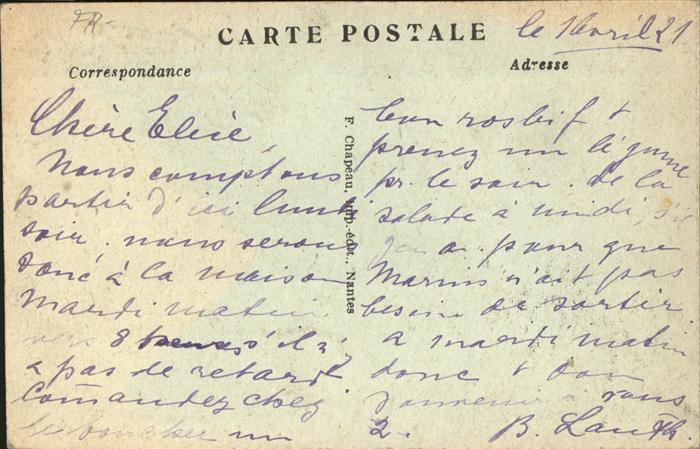 FR-
CARTE POSTALE
le 1 Avril 21
Correspondance
Adresse
Chère Elise,
Nous comptons
partir d'ici lundi
soir. nous serons
donc à la maison
Mardi matin
vers 8 heures s'il n'y
a pas de retard.
Comandez chez
le boucher un
F. Chapeau, imp.-édit., Nantes
bon rosbif &
prenez un légume
pr. le soir. de la
salade à midi, s'il
y en a. pour que
Marius n'ait pas
besoin de sortir.
a mardi matin
donc & bon
souvenir à vous
2. B. Lauth.